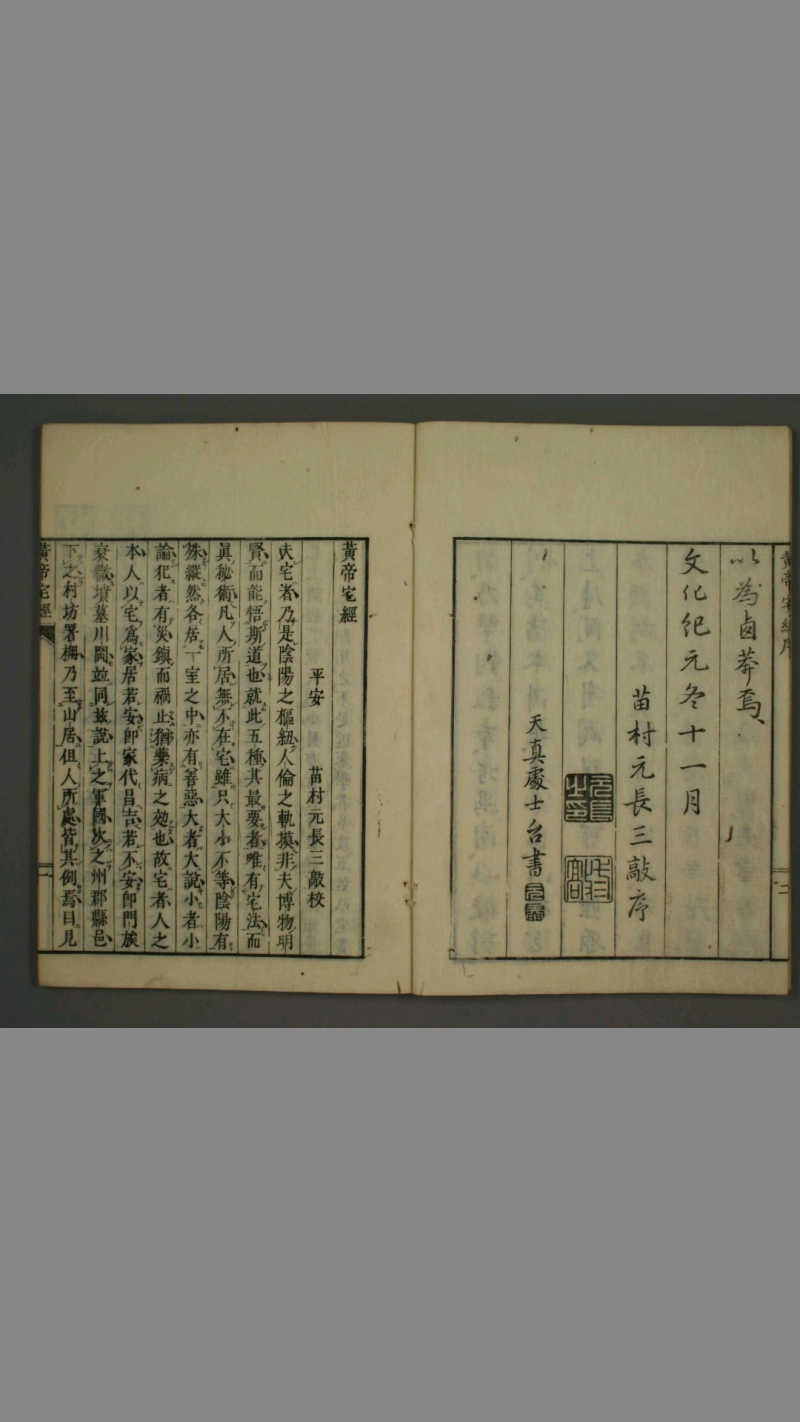 黃帝宅經序
以為鹵莽焉
文化紀元冬十一月
苗村元長三敲序
天真處士台書
二
黃帝宅經
平安　苗村元長三敲校
夫宅者乃是陰陽之樞紐人倫之軌摸非夫博物明
賢而能悟斯道也就此五種其最要者唯有宅法而
眞秘術凡人所居無不在宅雖只大小不等陰陽有
殊縱然各居一室之中亦有善惡大者大說小者小
論犯者有災鎮而禍止猶藥病之効也故宅者人之
本人以宅爲家居若安卽家代昌吉若不安卽門族
衰微墳墓川岡並同玆說上之軍國次之州郡縣邑
下之村坊署柵乃至山居但人所處皆其例焉目見
黃帝宅經
一